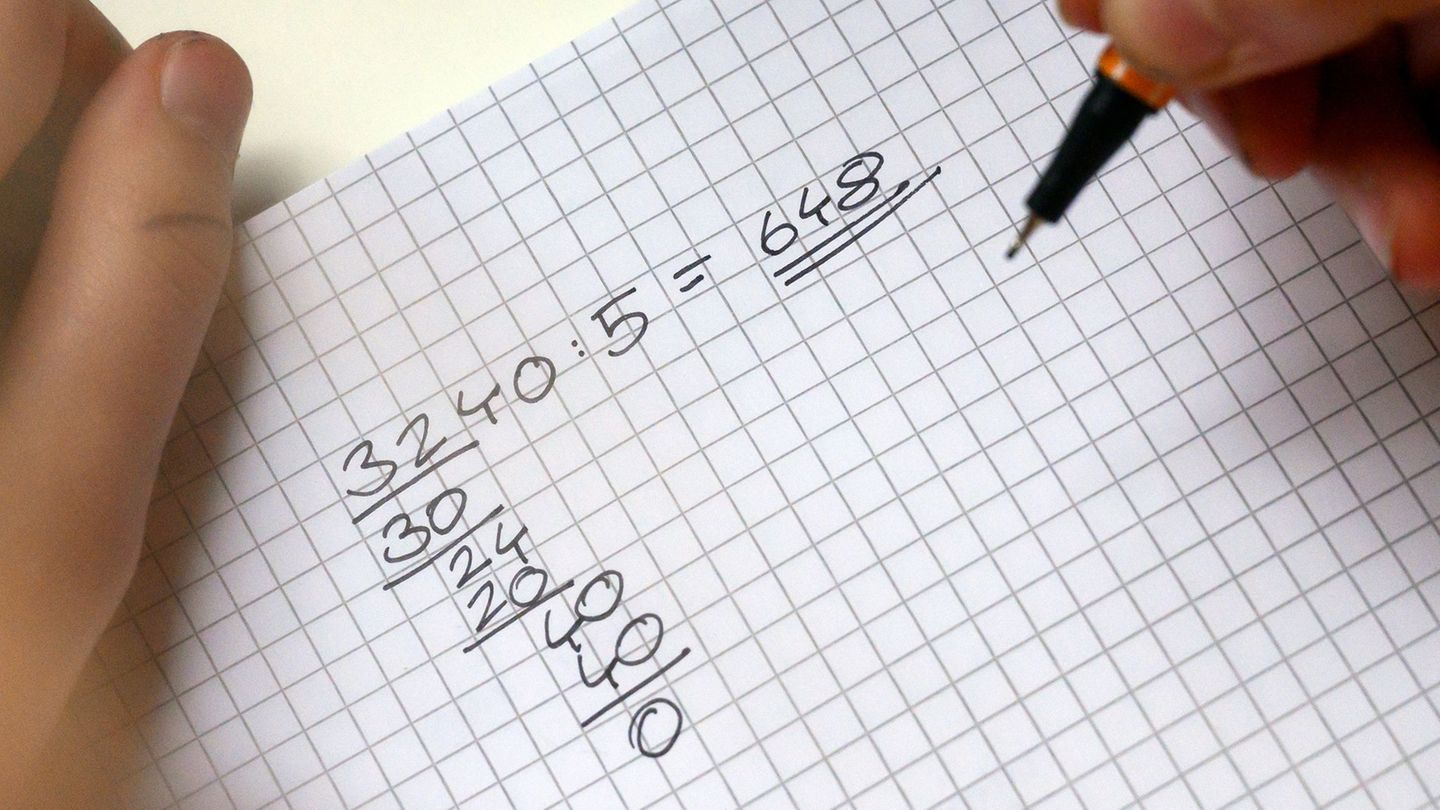 3240:5 = 648
30
24
20
40
40
0